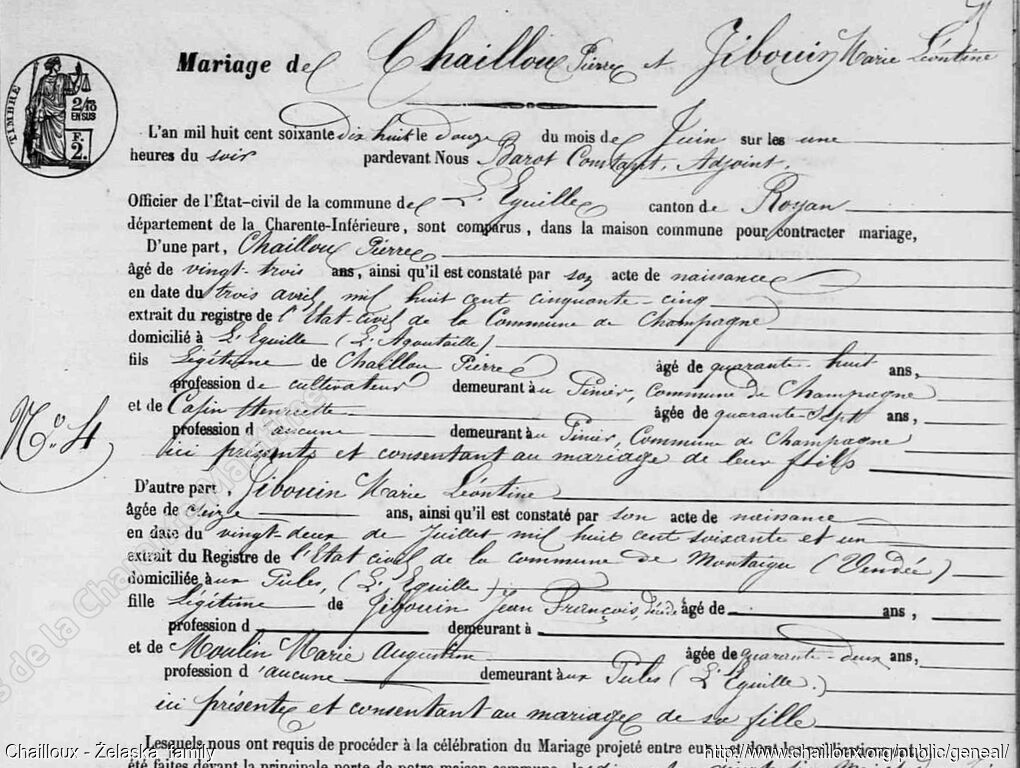 Mariage de Chailloux Pierre et Jibouin Marie Léontine
TIMBRE
2/10
EN SUS
F.
2.
L'an mil huit cent soixante dix huit le douze du mois de Juin sur les une
heures du soir pardevant Nous Barot Constant, Adjoint,
Officier de l'État-civil de la commune de L'Eguille canton de Royan
département de la Charente-Inférieure, sont comparus, dans la maison commune pour contracter mariage,
D'une part, Chailloux Pierre
âgé de vingt-trois ans, ainsi qu'il est constaté par son acte de naissance
en date du trois avril mil huit cent cinquante-cinq
extrait du registre de l'Etat-civil de la Commune de Champagne
domicilié à L'Eguille (L'Agoutaille)
fils légitime de Chailloux Pierre âgé de quarante-huit ans,
profession de cultivateur demeurant au Pinier, Commune de Champagne
et de Cafin Henriette âgée de quarante-sept ans,
profession d'aucune demeurant au Pinier, Commune de Champagne
ici présents et consentant au mariage de leur fils
N° 4
D'autre part, Jibouin Marie Léontine
âgée de seize ans, ainsi qu'il est constaté par son acte de naissance
en date du vingt-deux de Juillet mil huit cent soixante et un
extrait du Registre de l'Etat civil de la commune de Montaigu (Vendée)
domiciliée aux Tules, (L'Eguille)
fille légitime de Jibouin Jean François, âgé de ans,
profession d demeurant à
et de Moulin Marie Augustine âgée de quarante-deux ans,
profession d'aucune demeurant aux Tules (L'Eguille.)
ici présente et consentant au mariage de sa fille
Lesquels nous ont requis de procéder à la célébration du Mariage projeté entre eux et dont les publications ont
été faites devant la principale porte de notre maison commune,
Chailloux - Żelaska family
http://www.chailloux.org/public/geneal/